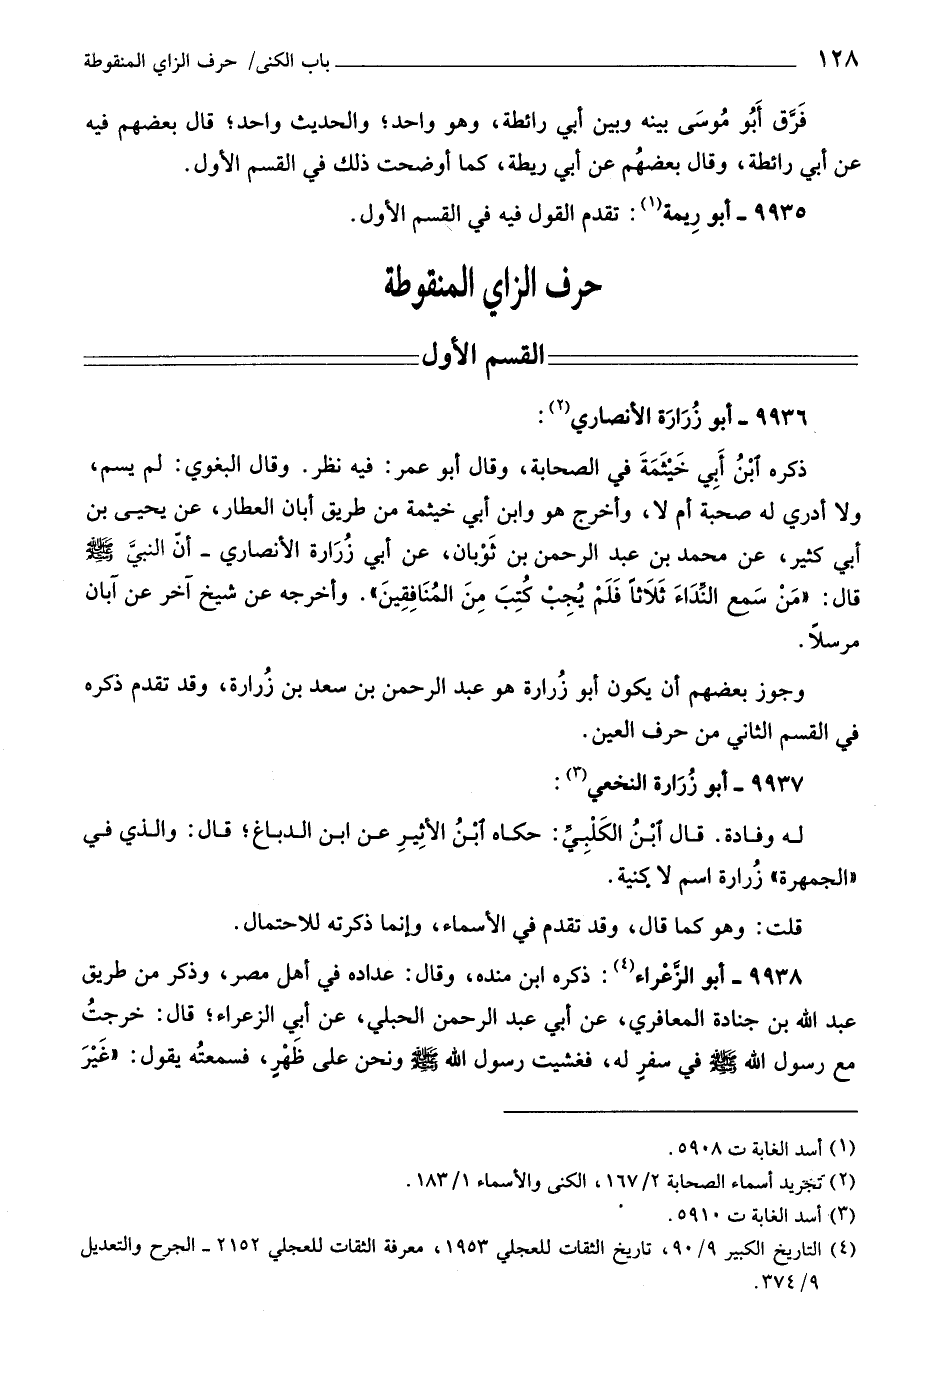 ١٢٨ ــــــــــــــــــــ باب الكنى/ حرف الزاي المنقوطة
فَرَّق أَبُو مُوسَى بينه وبين أبي رائطة، وهو واحد؛ والحديث واحد؛ قال بعضهم فيه
عن أبي رائطة، وقال بعضهُم عن أبي ريطة، كما أوضحت ذلك في القسم الأول.
٩٩٣٥ ـ أبو رِيمة(١): تقدم القول فيه في القسم الأول.
حرف الزاي المنقوطة
القسم الأول
٩٩٣٦ ـ أبو زُرَارَة الأنصاري(٢):
ذكره ٱبْنُ أَبِي خَيْثَمَةَ في الصحابة، وقال أبو عمر: فيه نظر. وقال البغوي: لم يسم،
ولا أدري له صحبة أم لا، وأخرج هو وابن أبي خيثمة من طريق أبان العطار، عن يحيى بن
أبي كثير، عن محمد بن عبد الرحمن بن ثَوْبان، عن أبي زُرَارة الأنصاري ـ أنّ النبيَّ ﷺ
قال: «مَنْ سَمِع النِّدَاءَ ثَلَاثاً فَلَمْ يُجِبْ كُتِبَ مِنَ المُنَافِقِينَ». وأخرجه عن شيخ آخر عن أبان
مرسلاً.
وجوز بعضهم أن يكون أبو زُرارة هو عبد الرحمن بن سعد بن زُرارة، وقد تقدم ذكره
في القسم الثاني من حرف العين.
٩٩٣٧ ـ أبو زُرَارة النخعي(٣):
له وفادة. قال ٱبْنُ الكَلْبِيِّ: حكاه ٱبْنُ الأثِيرِ عن ابن الدباغ؛ قال: والذي في
«الجمهرة» زُرارة اسم لا كنية.
قلت: وهو كما قال، وقد تقدم في الأسماء، وإنما ذكرته للاحتمال.
٩٩٣٨ ـ أبو الزَّعْراء(٤): ذكره ابن منده، وقال: عداده في أهل مصر، وذكر من طريق
عبد الله بن جنادة المعافري، عن أبي عبد الرحمن الحبلي، عن أبي الزعراء؛ قال: خرجتُ
مع رسول الله ﷺ في سفرٍ له، فغشيت رسول الله ﷺ ونحن على ظَهْرٍ، فسمعتُه يقول: «غَيْرَ
(١) أسد الغابة ت ٥٩٠٨.
(٢) تجريد أسماء الصحابة ١٦٧/٢، الكنى والأسماء ١٨٣/١.
(٣) أسد الغابة ت ٥٩١٠.
(٤) التاريخ الكبير ٩٠/٩، تاريخ الثقات للعجلي ١٩٥٣، معرفة الثقات للعجلي ٢١٥٢ ـ الجرح والتعديل
٣٧٤/٩.